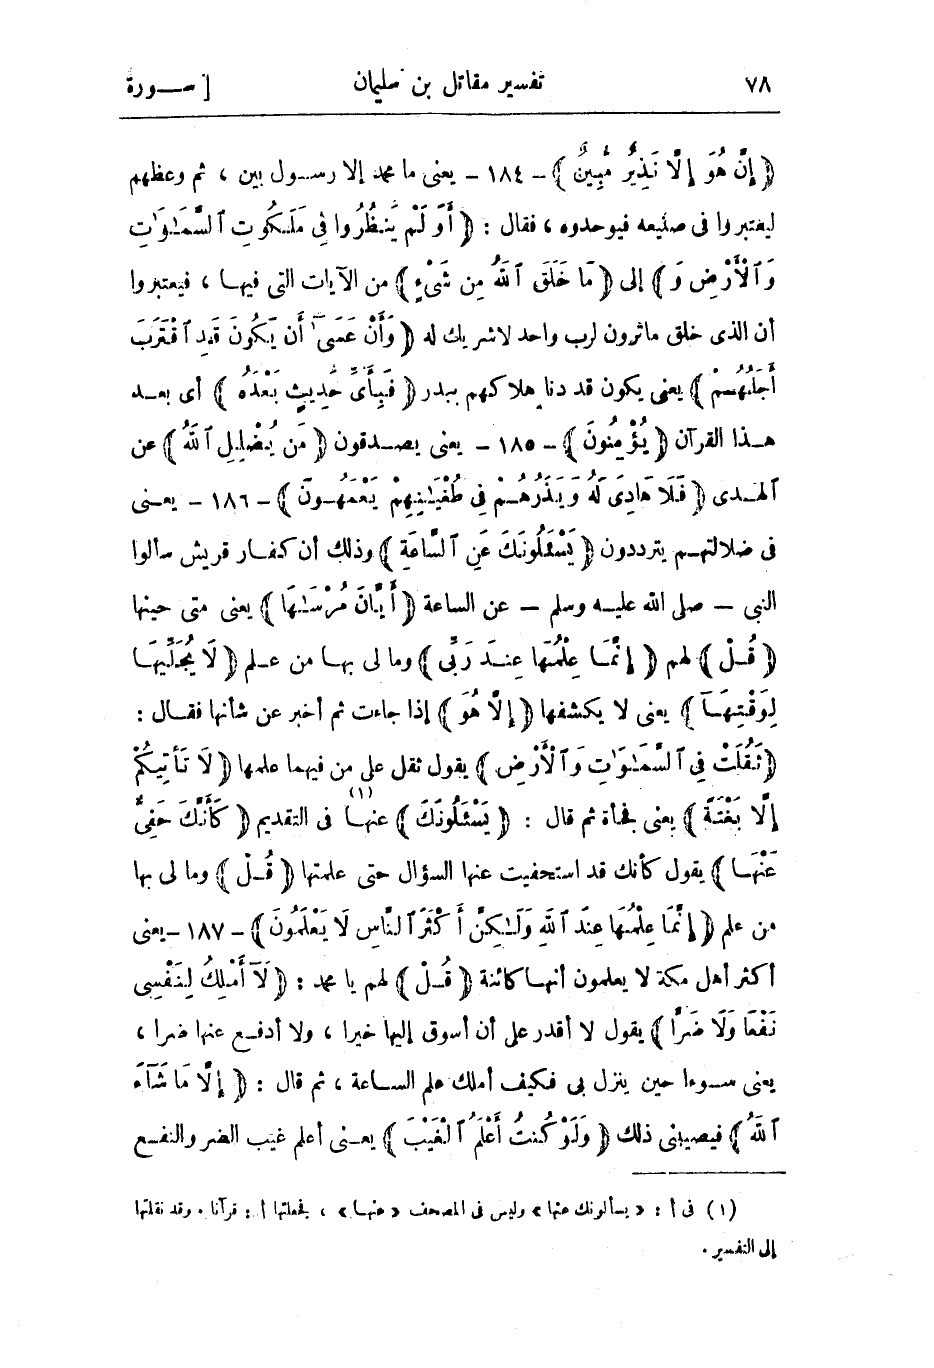 ٧٨ تفسير مقاتل بن سليمان [ ســـورة
﴿ إِنْ هُوَ إِلَّا نَذِيرٌ مُّبِينٌ ﴾ - ١٨٤ - يعنى ما محمد إلا رســول بين ، ثم وعظهم
ليعتبروا فى صنيعه فيوحدوه ، فقال : ﴿ أَوَ لَمْ يَنظُرُوا فِى مَلَكُوتِ ٱلسَّمَـٰوَٰتِ
وَٱلْأَرْضِ وَ ﴾ إلى ﴿ مَا خَلَقَ ٱللَّهُ مِن شَىْءٍ ﴾ من الآيات التى فيهــا ، فيعتبروا
أن الذى خلق ماترون لرب واحد لاشريك له ﴿ وَأَنْ عَسَىٰٓ أَن يَكُونَ قَدِ ٱقْتَرَبَ
أَجَلُهُمْ ﴾ يعنى يكون قد دنا هلاكهم ببدر ﴿ فَبِأَىِّ حَدِيثٍ بَعْدَهُ ﴾ أى بعــد
هــذا القرآن ﴿ يُؤْمِنُونَ ﴾ - ١٨٥ - يعنى يصــدقون ﴿ مَن يُضْلِلِ ٱللَّهُ ﴾ عن
الهــدى ﴿ فَلَا هَادِىَ لَهُ وَيَذَرُهُــمْ فِى طُغْيَـٰنِهِمْ يَعْمَهُــونَ ﴾ - ١٨٦ - يعــنى
فى ضلالتهــم يترددون ﴿ يَسْـَٔلُونَكَ عَنِ ٱلسَّاعَةِ ﴾ وذلك أن كفــار قريش سألوا
النبى - صلى الله عليــه وسلم - عن الساعة ﴿ أَيَّانَ مُرْسَـٰهَا ﴾ يعنى متى حينها
﴿ قُــلْ ﴾ لهم ﴿ إِنَّمَــا عِلْمُهَا عِنــدَ رَبِّى ﴾ وما لى بهــا من عــلم ﴿ لَا يُجَلِّيهَــا
لِوَقْتِهَــآ ﴾ يعنى لا يكشفها ﴿ إِلَّا هُوَ ﴾ إذا جاءت ثم أخبر عن شأنها فقــال :
﴿ ثَقُلَتْ فِى ٱلسَّمَـٰوَٰتِ وَٱلْأَرْضِ ﴾ يقول ثقل على من فيهما علمها ﴿ لَا تَأْتِيكُمْ
إِلَّا بَغْتَةً ﴾ يعنى فجأة ثم قال : ﴿ يَسْـَٔلُونَكَ ﴾ عنهــا (١) فى التقديم ﴿ كَأَنَّكَ حَفِىٌّ
عَنْهَــا ﴾ يقول كأنك قد استحفيت عنها السؤال حتى علمتها ﴿ قُــلْ ﴾ وما لى بها
من علم ﴿ إِنَّمَا عِلْمُهَا عِندَ ٱللَّهِ وَلَـٰكِنَّ أَكْثَرَ ٱلنَّاسِ لَا يَعْلَمُونَ ﴾ - ١٨٧ - يعنى
أكثر أهل مكة لا يعلمون أنهــا كائنة ﴿ قُــلْ ﴾ لهم يا محمد : ﴿ لَآ أَمْلِكُ لِنَفْسِى
نَفْعًا وَلَا ضَرًّا ﴾ يقول لا أقدر على أن أسوق إليها خيرا ، ولا أدفــع عنها ضرا ،
يعنى ســوءا حين ينزل بى فكيف أملك علم الســاعة ، ثم قال : ﴿ إِلَّا مَا شَآءَ
ٱللَّهُ ﴾ فيصيبنى ذلك ﴿ وَلَوْ كُنتُ أَعْلَمُ ٱلْغَيْبَ ﴾ يعــنى أعلم غيب الضر والنفــع
(١) فى أ : « يسألونك عنها » وليس فى المصحف « عنهــا » ، فجعلتها أ : قرآنا . وقد نقلتها
إلى التفسير .